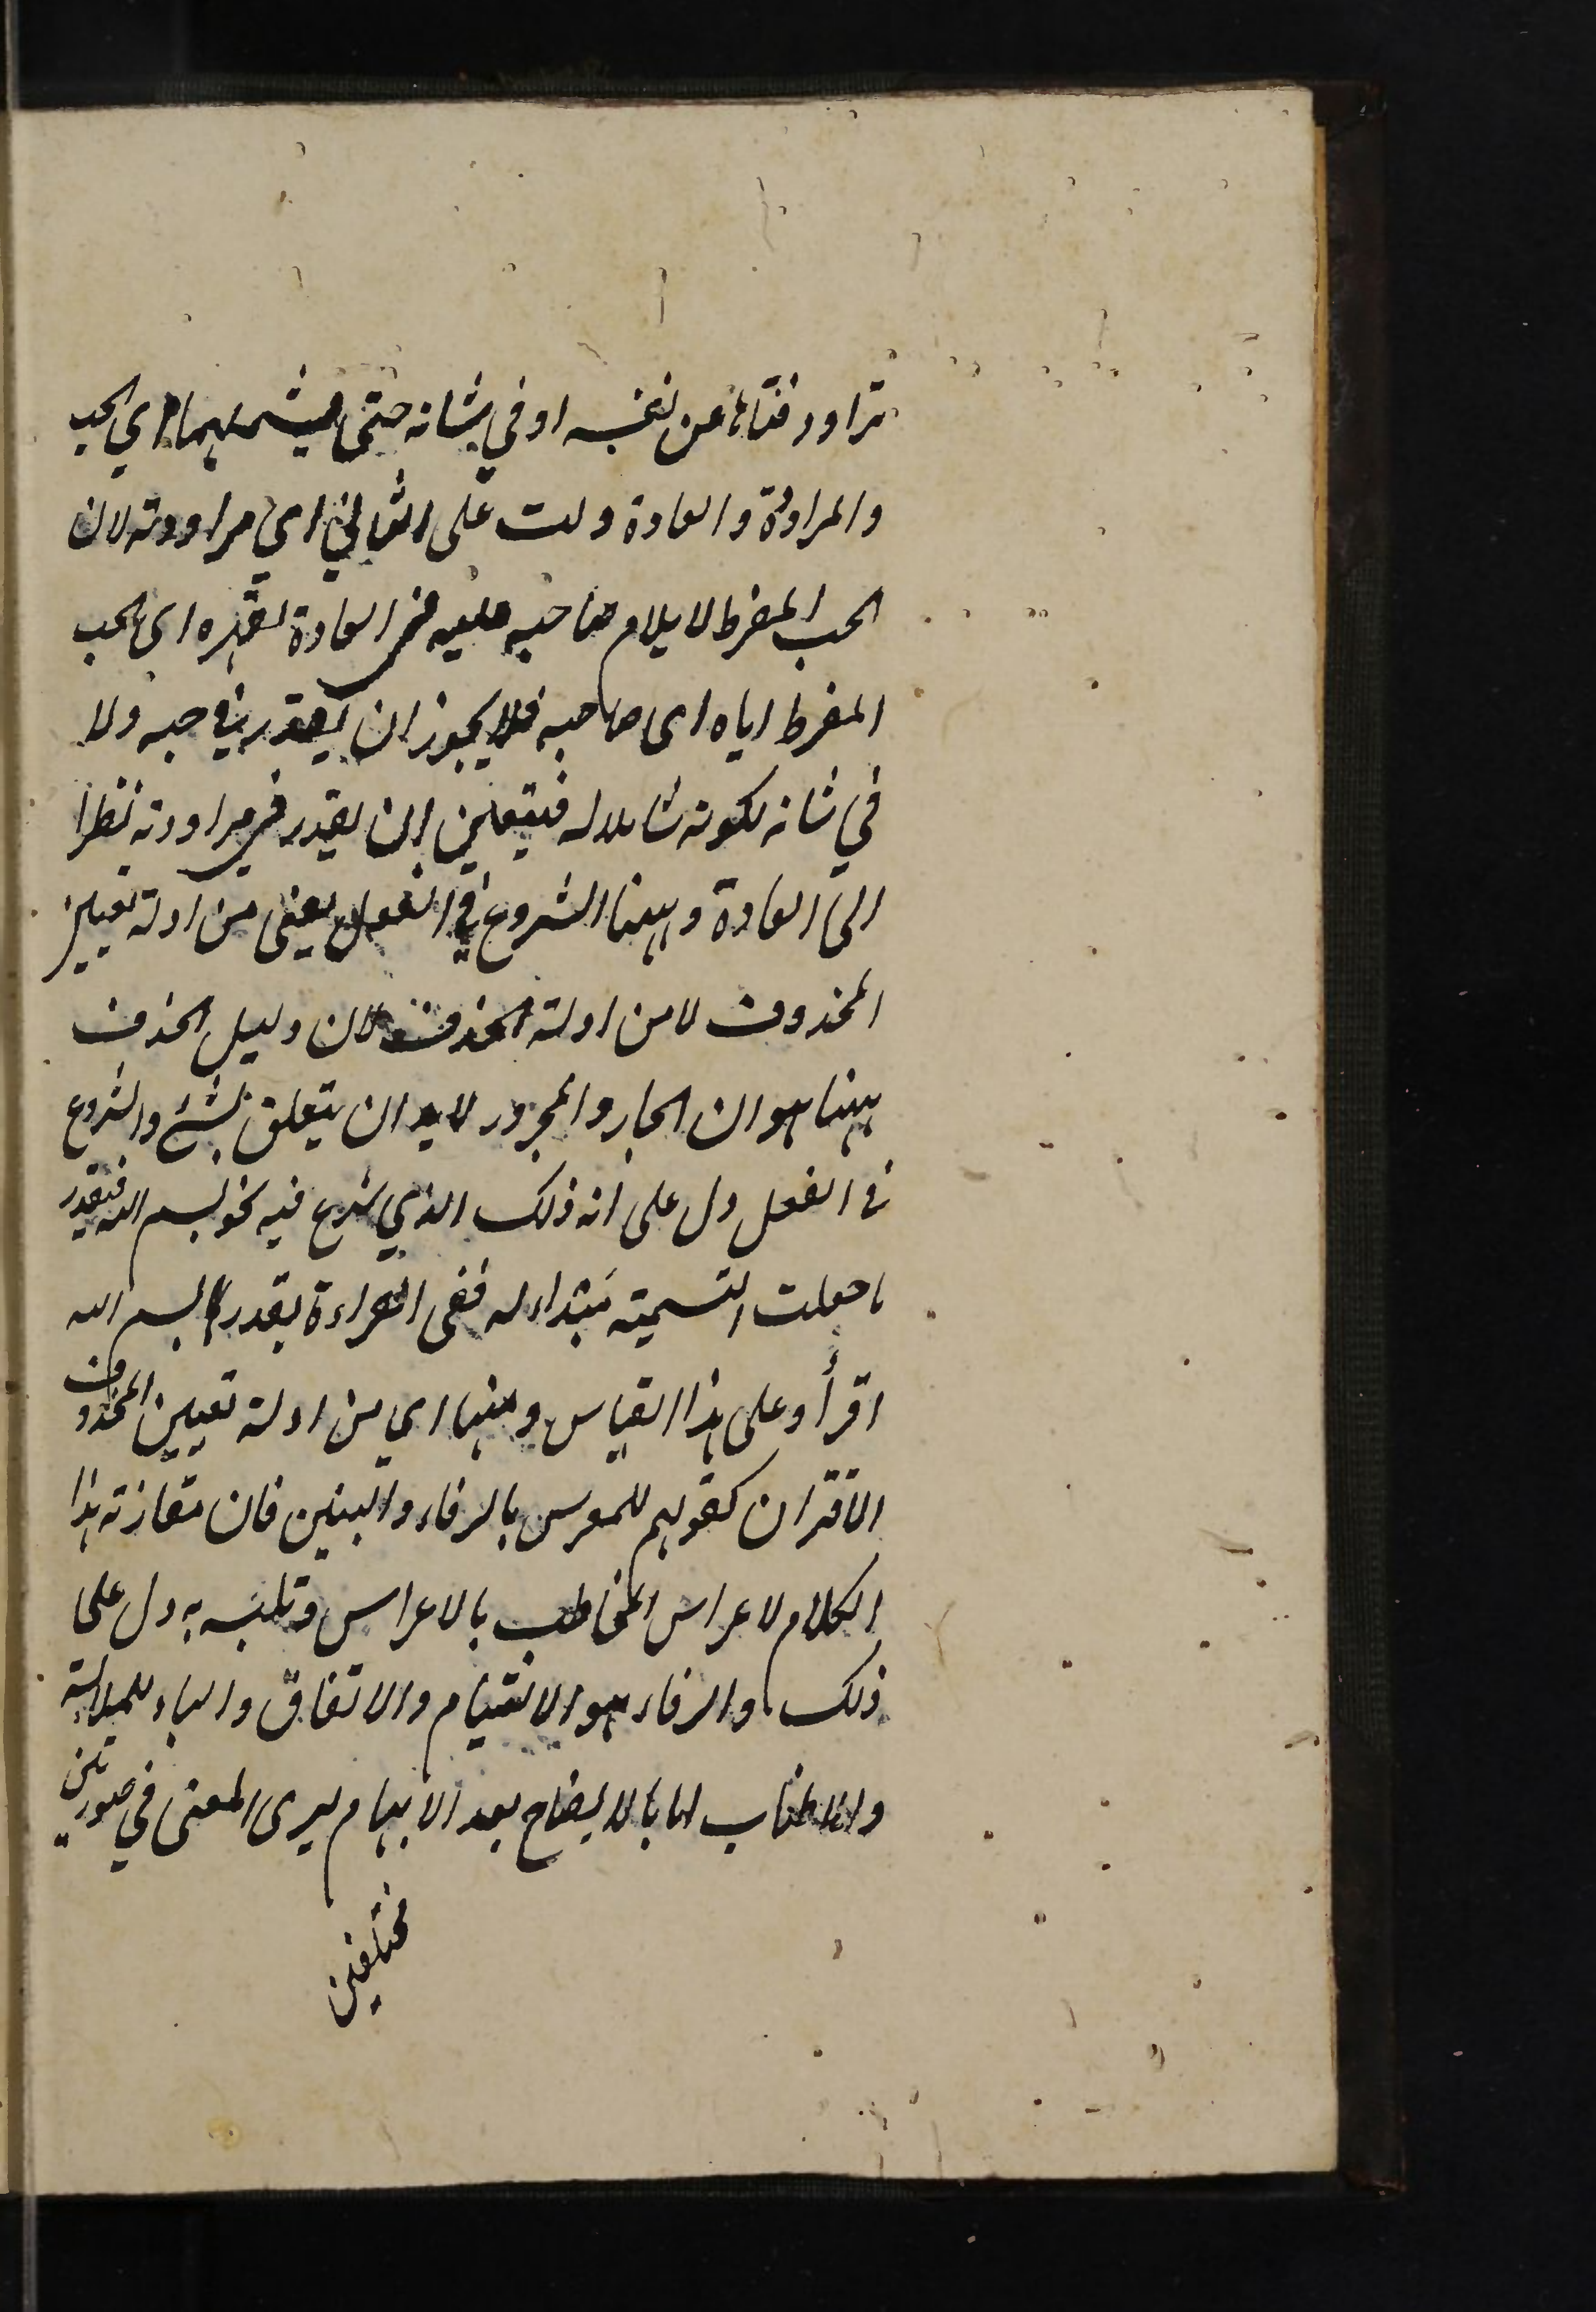 تراود فتاها عن نفسه او في شانه حتى يشملهما اي الحب
والمراودة والعادة دلت على الثاني اي مراودته لان
الحب المفرط لا يلام صاحبه عليه في العادة لقهره اى الحب
المفرط اياه اى صاحبه فلا يجوز ان يقدر في حبه ولا
في شانه لكونه شاملا له فيتعين ان يقدر في مراودته نظرا
الى العادة ومنها الشروع في الفعل يعنى من ادلة تعيين
المحذوف لا من ادلة الحذف لان دليل الحذف
ههنا هو ان الجار والمجرور لا بد ان يتعلق بشئ والشروع
في الفعل دل على انه ذلك الذي شرع فيه نحو بسم الله فيقدر
ما جعلت التسمية مبتداء له ففى القراءة يقدر بسم الله
اقرأ وعلى هذا القياس ومنها اي من ادلة تعيين المحذوف
الاقتران كقولهم للمعرس بالرفاء والبنين فان مقارنة هذا
الكلام لاعراس المخاطب بالاعراس وتلبسه به دل على
ذلك والرفاء هو الالتيام والاتفاق والباء للملابسة
والاطناب اما بالايضاح بعد الابهام ليرى المعنى في صورتين
مختلفين